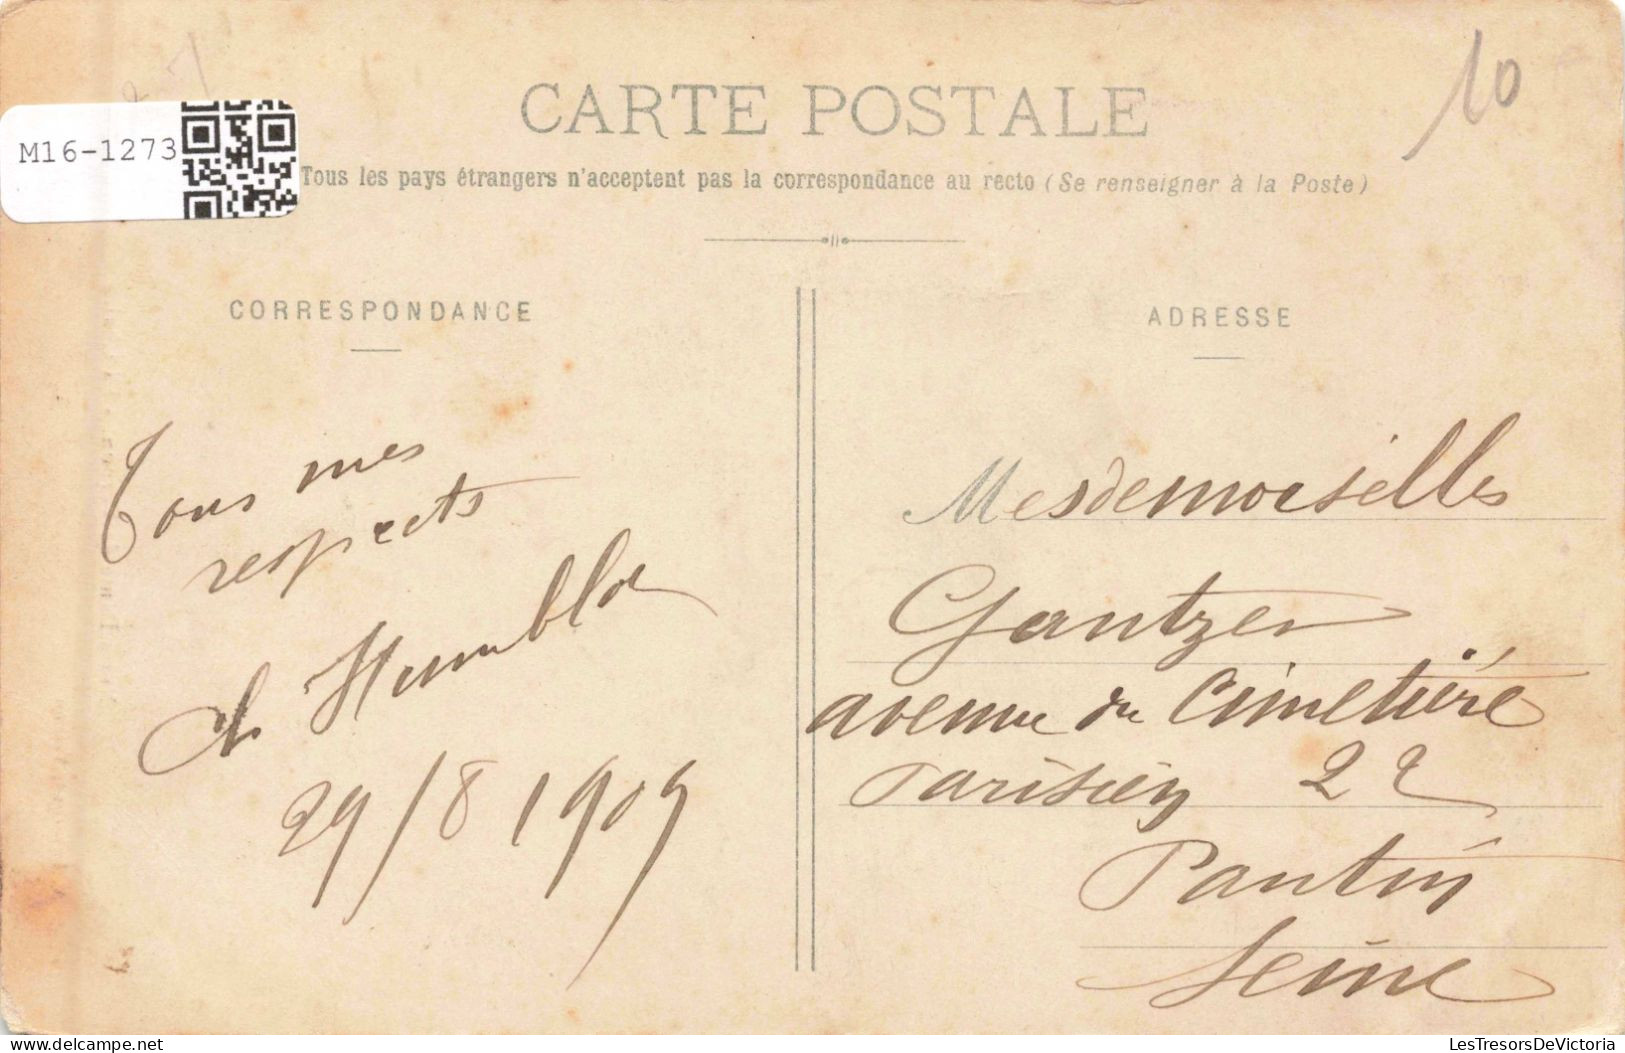 10
M16-1273
CARTE POSTALE
Tous les pays étrangers n'acceptent pas la correspondance au recto (Se renseigner à la Poste)
CORRESPONDANCE
Tous mes
respects
Ch Humblot
29/8 1909
ADRESSE
Mesdemoiselles
Gantzer
avenue du Cimetière
Parisien 22
Pantin
Seine
delcampe.net
LesTresorsDeVictoria